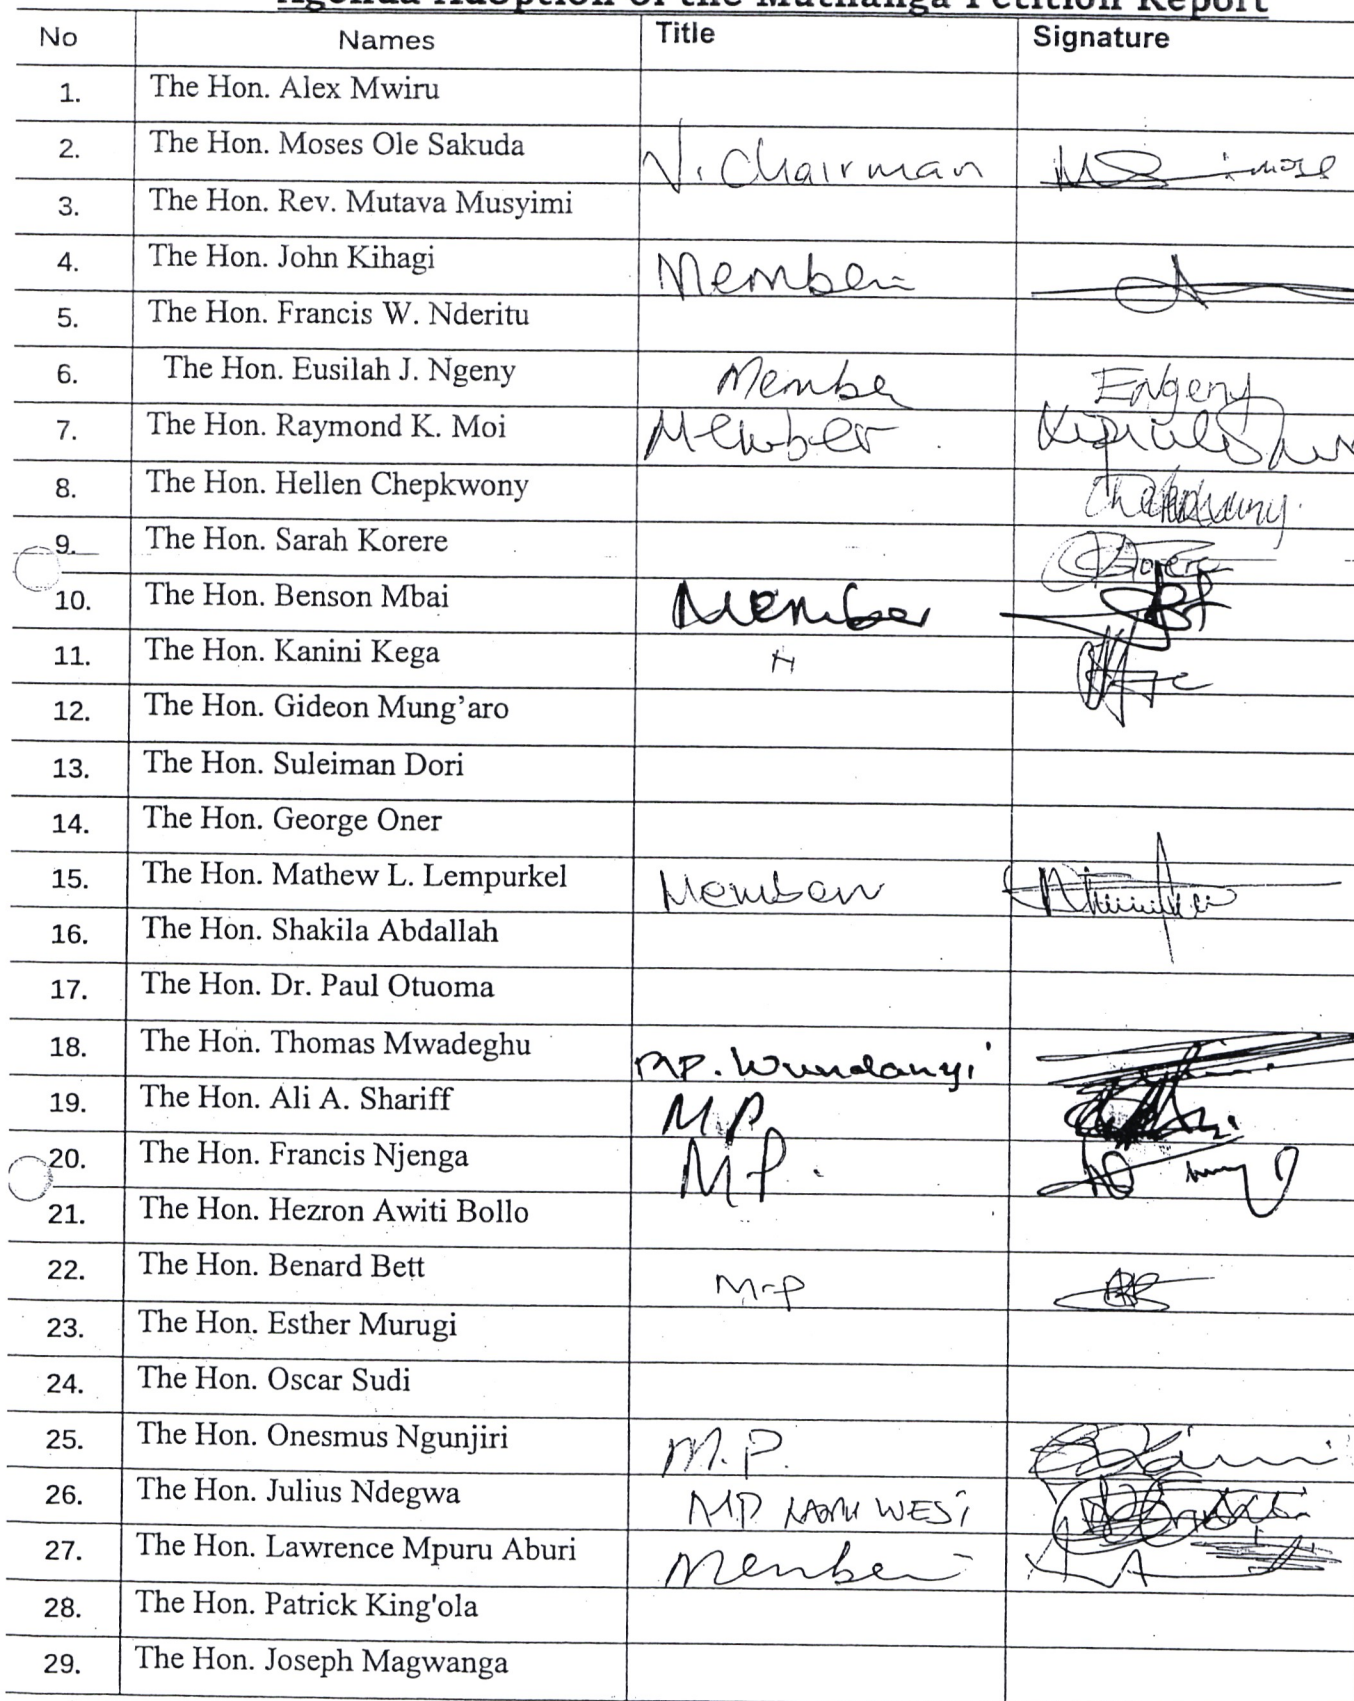 Agenda Adoption of the Muthanga Petition Report
No Names Title Signature
1. The Hon. Alex Mwiru
2. The Hon. Moses Ole Sakuda V. Chairman
3. The Hon. Rev. Mutava Musyimi
4. The Hon. John Kihagi Member
5. The Hon. Francis W. Nderitu
6. The Hon. Eusilah J. Ngeny Membe ENgeny
7. The Hon. Raymond K. Moi Member
8. The Hon. Hellen Chepkwony
9. The Hon. Sarah Korere
10. The Hon. Benson Mbai Member
11. The Hon. Kanini Kega
12. The Hon. Gideon Mung’aro
13. The Hon. Suleiman Dori
14. The Hon. George Oner
15. The Hon. Mathew L. Lempurkel Member
16. The Hon. Shakila Abdallah
17. The Hon. Dr. Paul Otuoma
18. The Hon. Thomas Mwadeghu MP. Wundanyi
19. The Hon. Ali A. Shariff M.P
20. The Hon. Francis Njenga MP.
21. The Hon. Hezron Awiti Bollo
22. The Hon. Benard Bett M-P
23. The Hon. Esther Murugi
24. The Hon. Oscar Sudi
25. The Hon. Onesmus Ngunjiri M.P.
26. The Hon. Julius Ndegwa MP LAMU WEST
27. The Hon. Lawrence Mpuru Aburi Member
28. The Hon. Patrick King'ola
29. The Hon. Joseph Magwanga